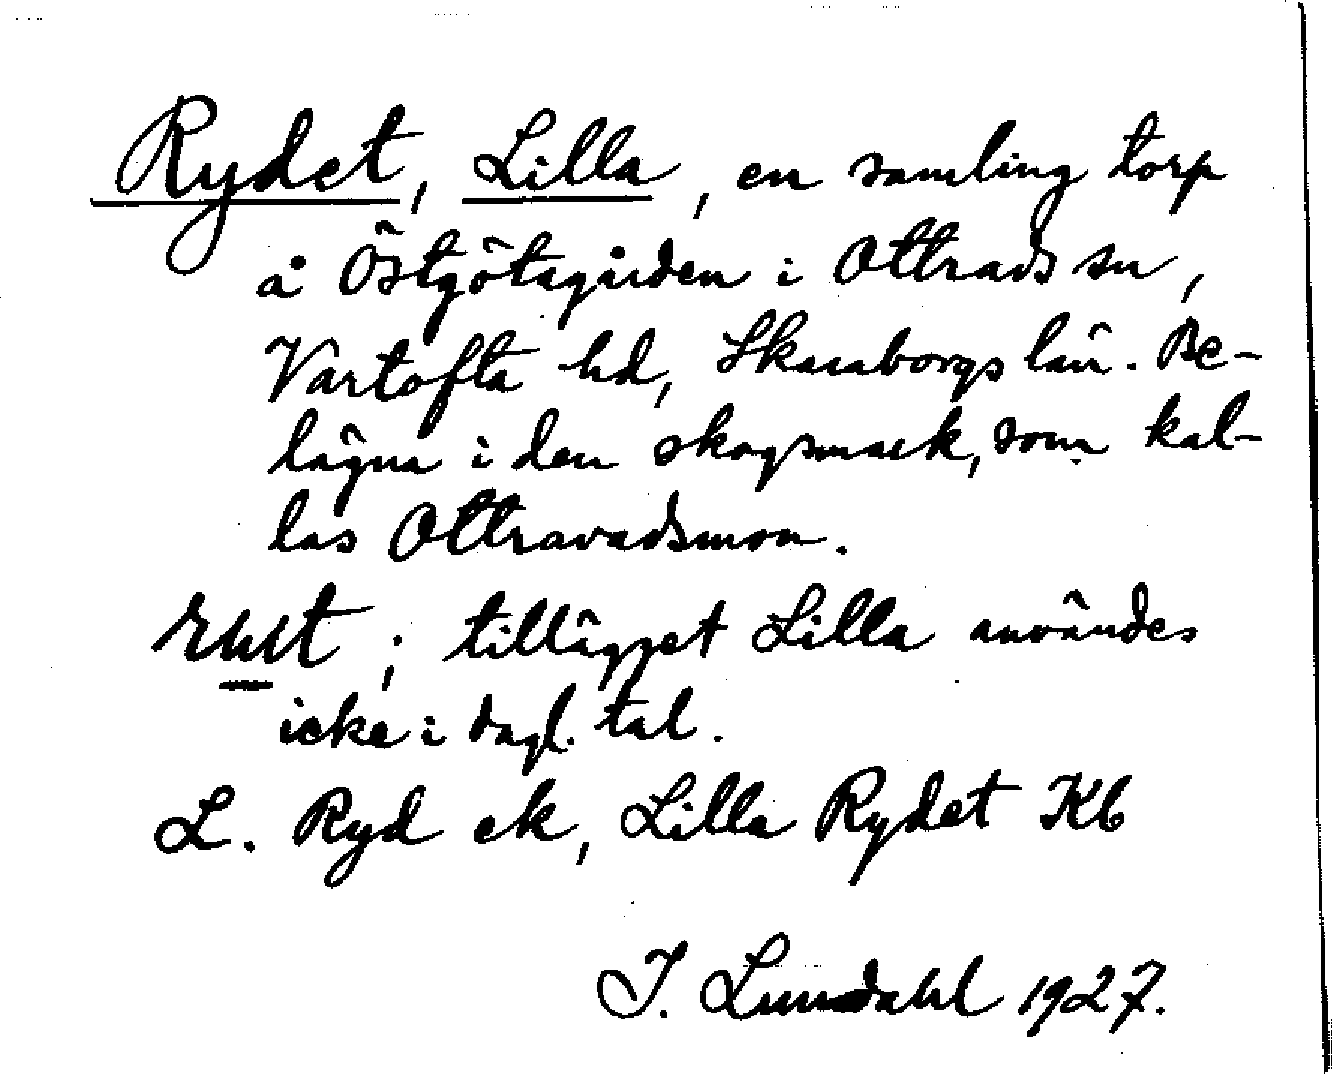 Rydet, Lilla, en samling torp
å Östgötagården i Ottrads sn,
Vartofta hd, Skaraborgs län. Be-
lägna i den skogsmark, som kal-
las Ottravadsmon.
; tillägget Lilla användes
icke i dagl. tal.
L. Ryd ek, Lilla Rydet Kb
J. Lundahl 1927.